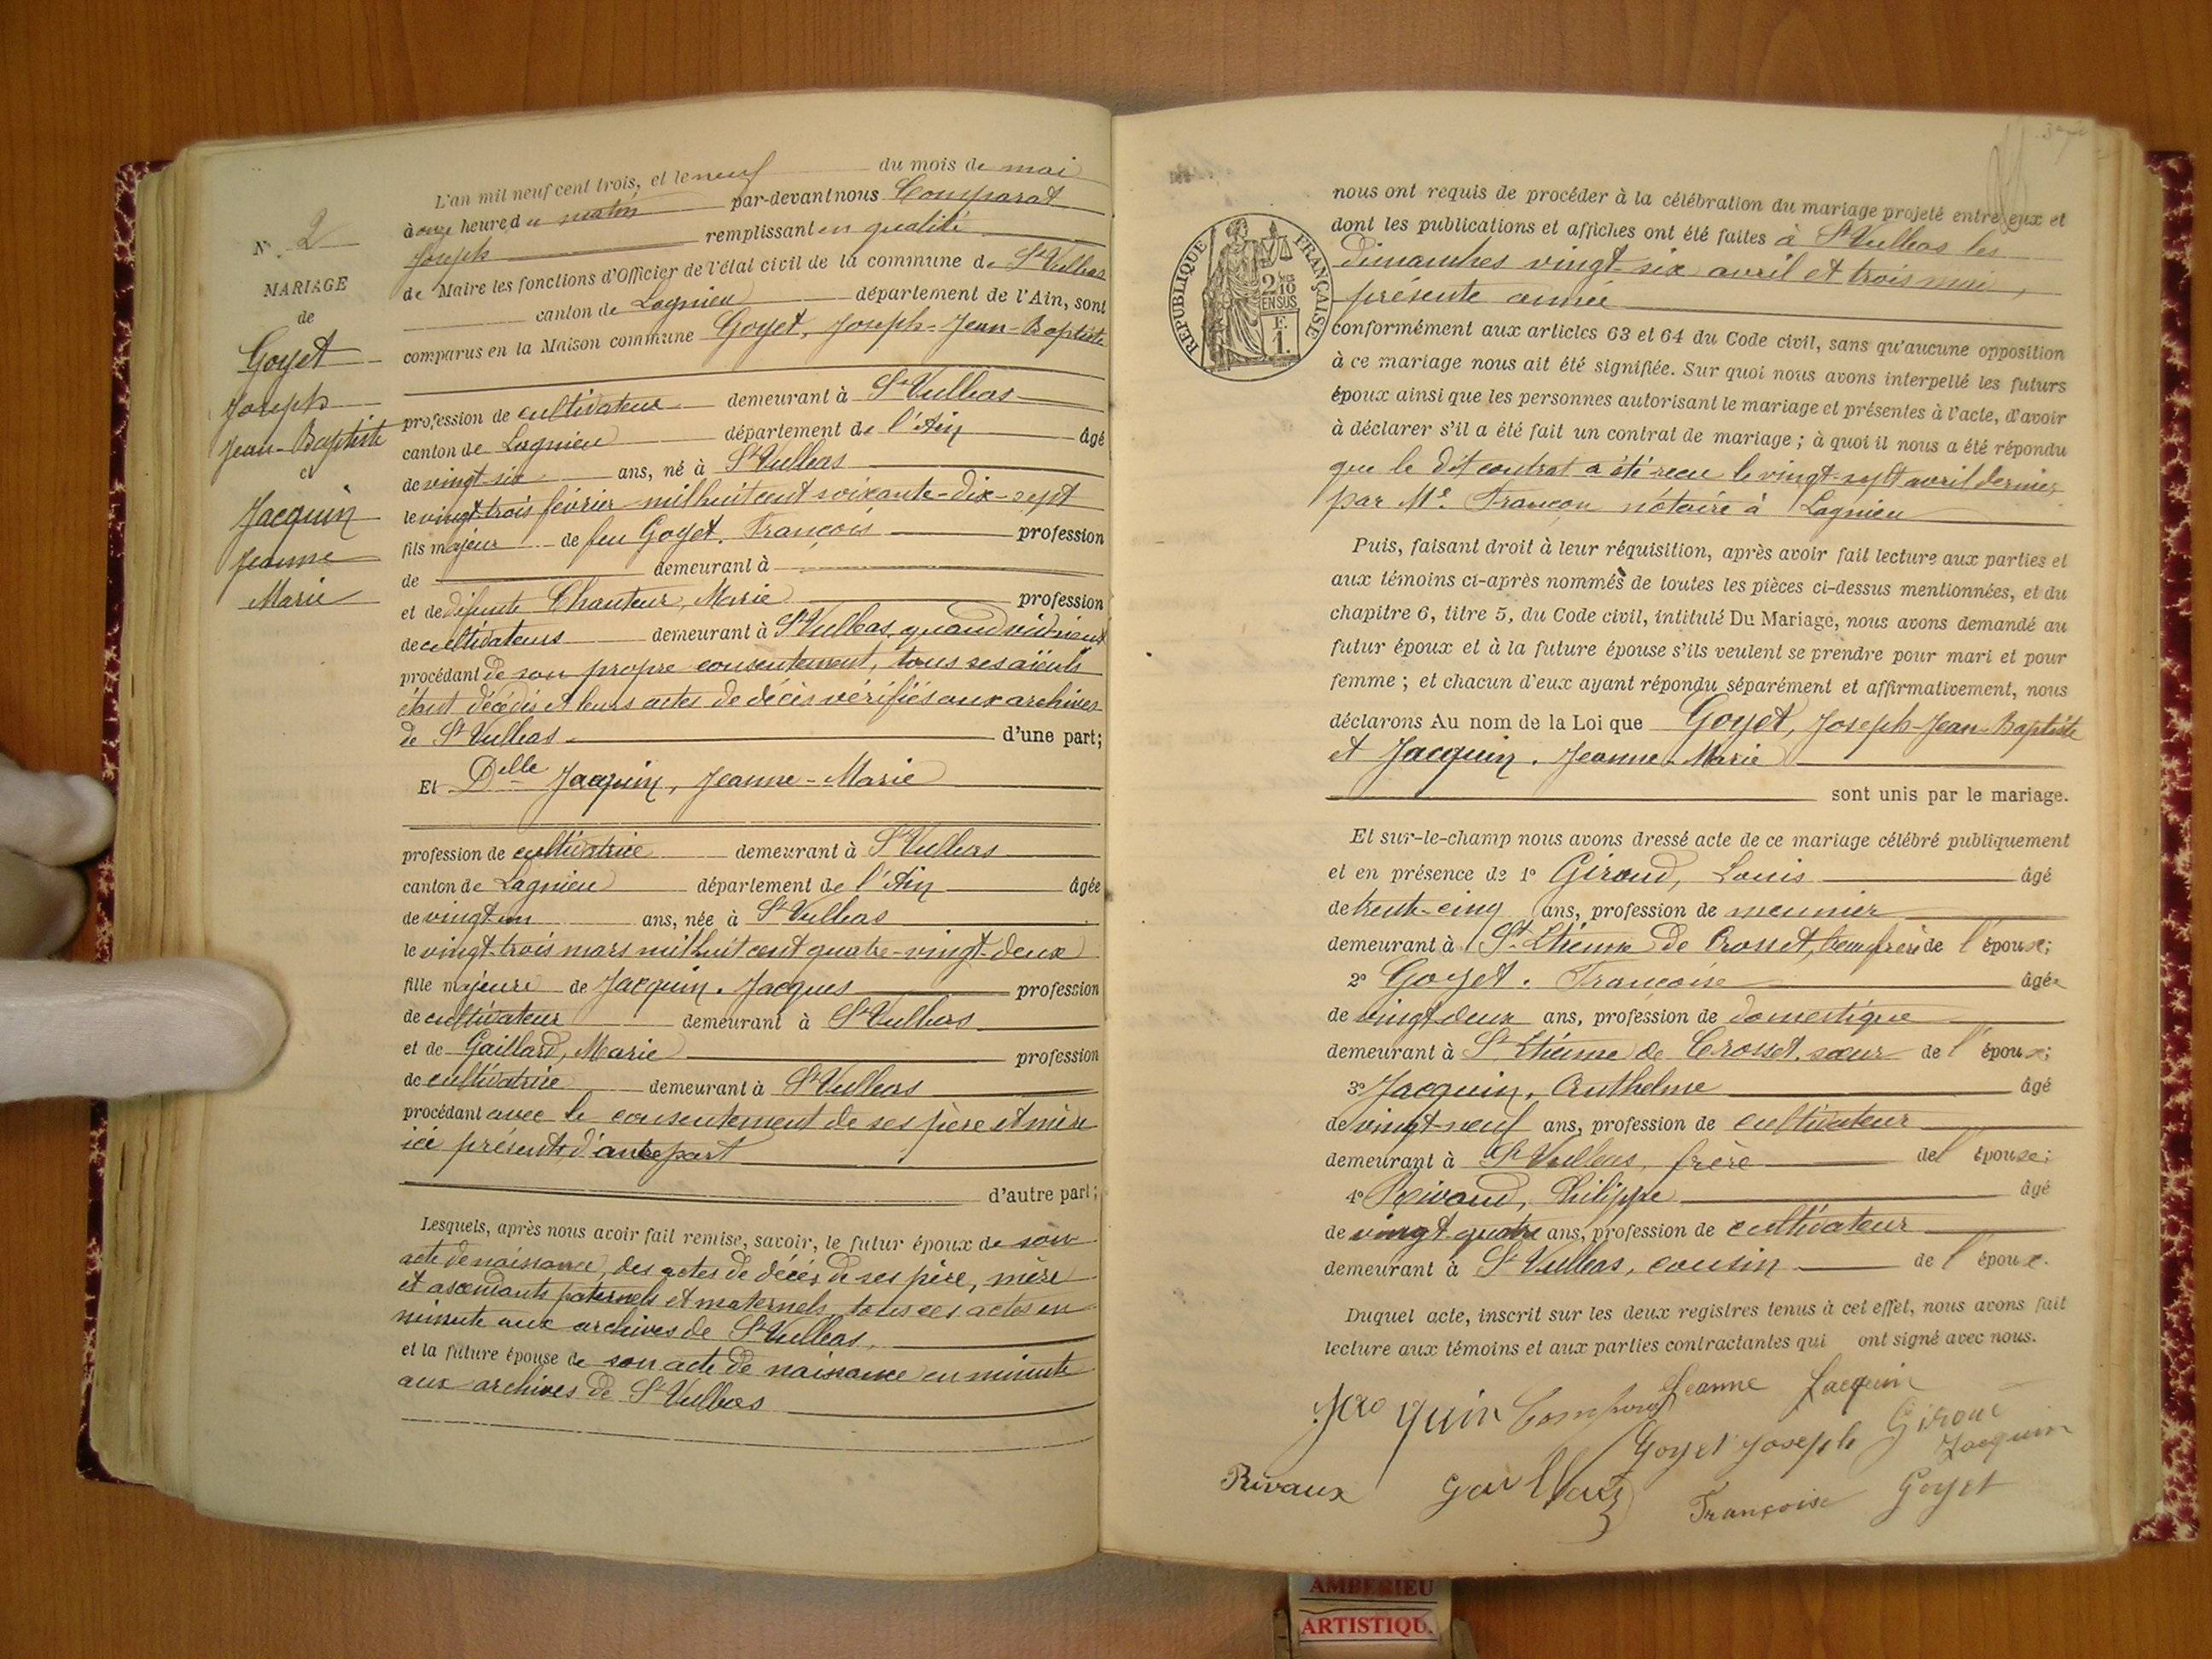 N° 2
MARIAGE
de
Goyet
Joseph
Jean-Baptiste
et
Jacquin
Jeanne
Marie
L'an mil neuf cent trois, et le neuf du mois de mai
à onze heure du matin par-devant nous Comparat
Joseph remplissant en qualité
de Maire les fonctions d'Officier de l'état civil de la commune de St Vulbas
canton de Lagnieu département de l'Ain, sont
comparus en la Maison commune Goyet, Joseph-Jean-Baptiste
profession de cultivateur demeurant à St Vulbas
canton de Lagnieu département de l'Ain âgé
de vingt-six ans, né à St Vulbas
le vingt-trois février mil huit cent soixante-dix-sept
fils majeur de feu Goyet, François profession
de demeurant à
et de défunte Chanteur, Marie profession
de cultivateurs demeurant à St Vulbas, quand vivaient
procédant de son propre consentement, tous ses aïeuls
étant décédés et leurs actes de décès vérifiés aux archives
de St Vulbas d'une part;
Et Delle Jacquin, Jeanne-Marie
profession de cultivatrice demeurant à St Vulbas
canton de Lagnieu département de l'Ain âgée
de vingt un ans, née à St Vulbas
le vingt-trois mars mil huit cent quatre-vingt-deux
fille majeure de Jacquin, Jacques profession
de cultivateur demeurant à St Vulbas
et de Gaillard, Marie profession
de cultivatrice demeurant à St Vulbas
procédant avec le consentement de ses père et mère
ici présents d'autre part
d'autre part;
Lesquels, après nous avoir fait remise, savoir, le futur époux de son
acte de naissance, des actes de décès de ses père, mère
et ascendants paternels et maternels, tous ces actes en
minute aux archives de St Vulbas,
et la future épouse de son acte de naissance en minute
aux archives de St Vulbas
RÉPUBLIQUE FRANÇAISE
2/10
EN SUS
F.
1.
nous ont requis de procéder à la célébration du mariage projeté entre eux et
dont les publications et affiches ont été faites à St Vulbas les
dimanches vingt-six avril et trois mai,
présente année
conformément aux articles 63 et 64 du Code civil, sans qu'aucune opposition
à ce mariage nous ait été signifiée. Sur quoi nous avons interpellé les futurs
époux ainsi que les personnes autorisant le mariage et présentes à l'acte, d'avoir
à déclarer s'il a été fait un contrat de mariage; à quoi il nous a été répondu
que le dit contrat a été reçu le vingt-sept avril dernier
par Me Francon notaire à Lagnieu
Puis, faisant droit à leur réquisition, après avoir fait lecture aux parties et
aux témoins ci-après nommés de toutes les pièces ci-dessus mentionnées, et du
chapitre 6, titre 5, du Code civil, intitulé Du Mariage, nous avons demandé au
futur époux et à la future épouse s'ils veulent se prendre pour mari et pour
femme; et chacun d'eux ayant répondu séparément et affirmativement, nous
déclarons Au nom de la Loi que Goyet, Joseph-Jean-Baptiste
et Jacquin, Jeanne-Marie
sont unis par le mariage.
Et sur-le-champ nous avons dressé acte de ce mariage célébré publiquement
et en présence de 1° Giroud, Louis âgé
de trente-cinq ans, profession de meunier
demeurant à St Etienne de Crosset, beau frère de l'épouse;
2° Goyet, Françoise âgée
de vingt deux ans, profession de domestique
demeurant à St Etienne de Crosset, sœur de l'époux;
3° Jacquin, Anthelme âgé
de vingt-neuf ans, profession de cultivateur
demeurant à St Vulbas, frère de l'épouse;
4° Philippe âgé
de vingt-quatre ans, profession de cultivateur
demeurant à St Vulbas, cousin de l'époux.
Duquel acte, inscrit sur les deux registres tenus à cet effet, nous avons fait
lecture aux témoins et aux parties contractantes qui ont signé avec nous.
Jacquin Comparat Jeanne Jacquin
Goyet Joseph Giroud
Jacquin
Rivaux Gaillard Françoise Goyet
AMBERIEU
ARTISTIQU